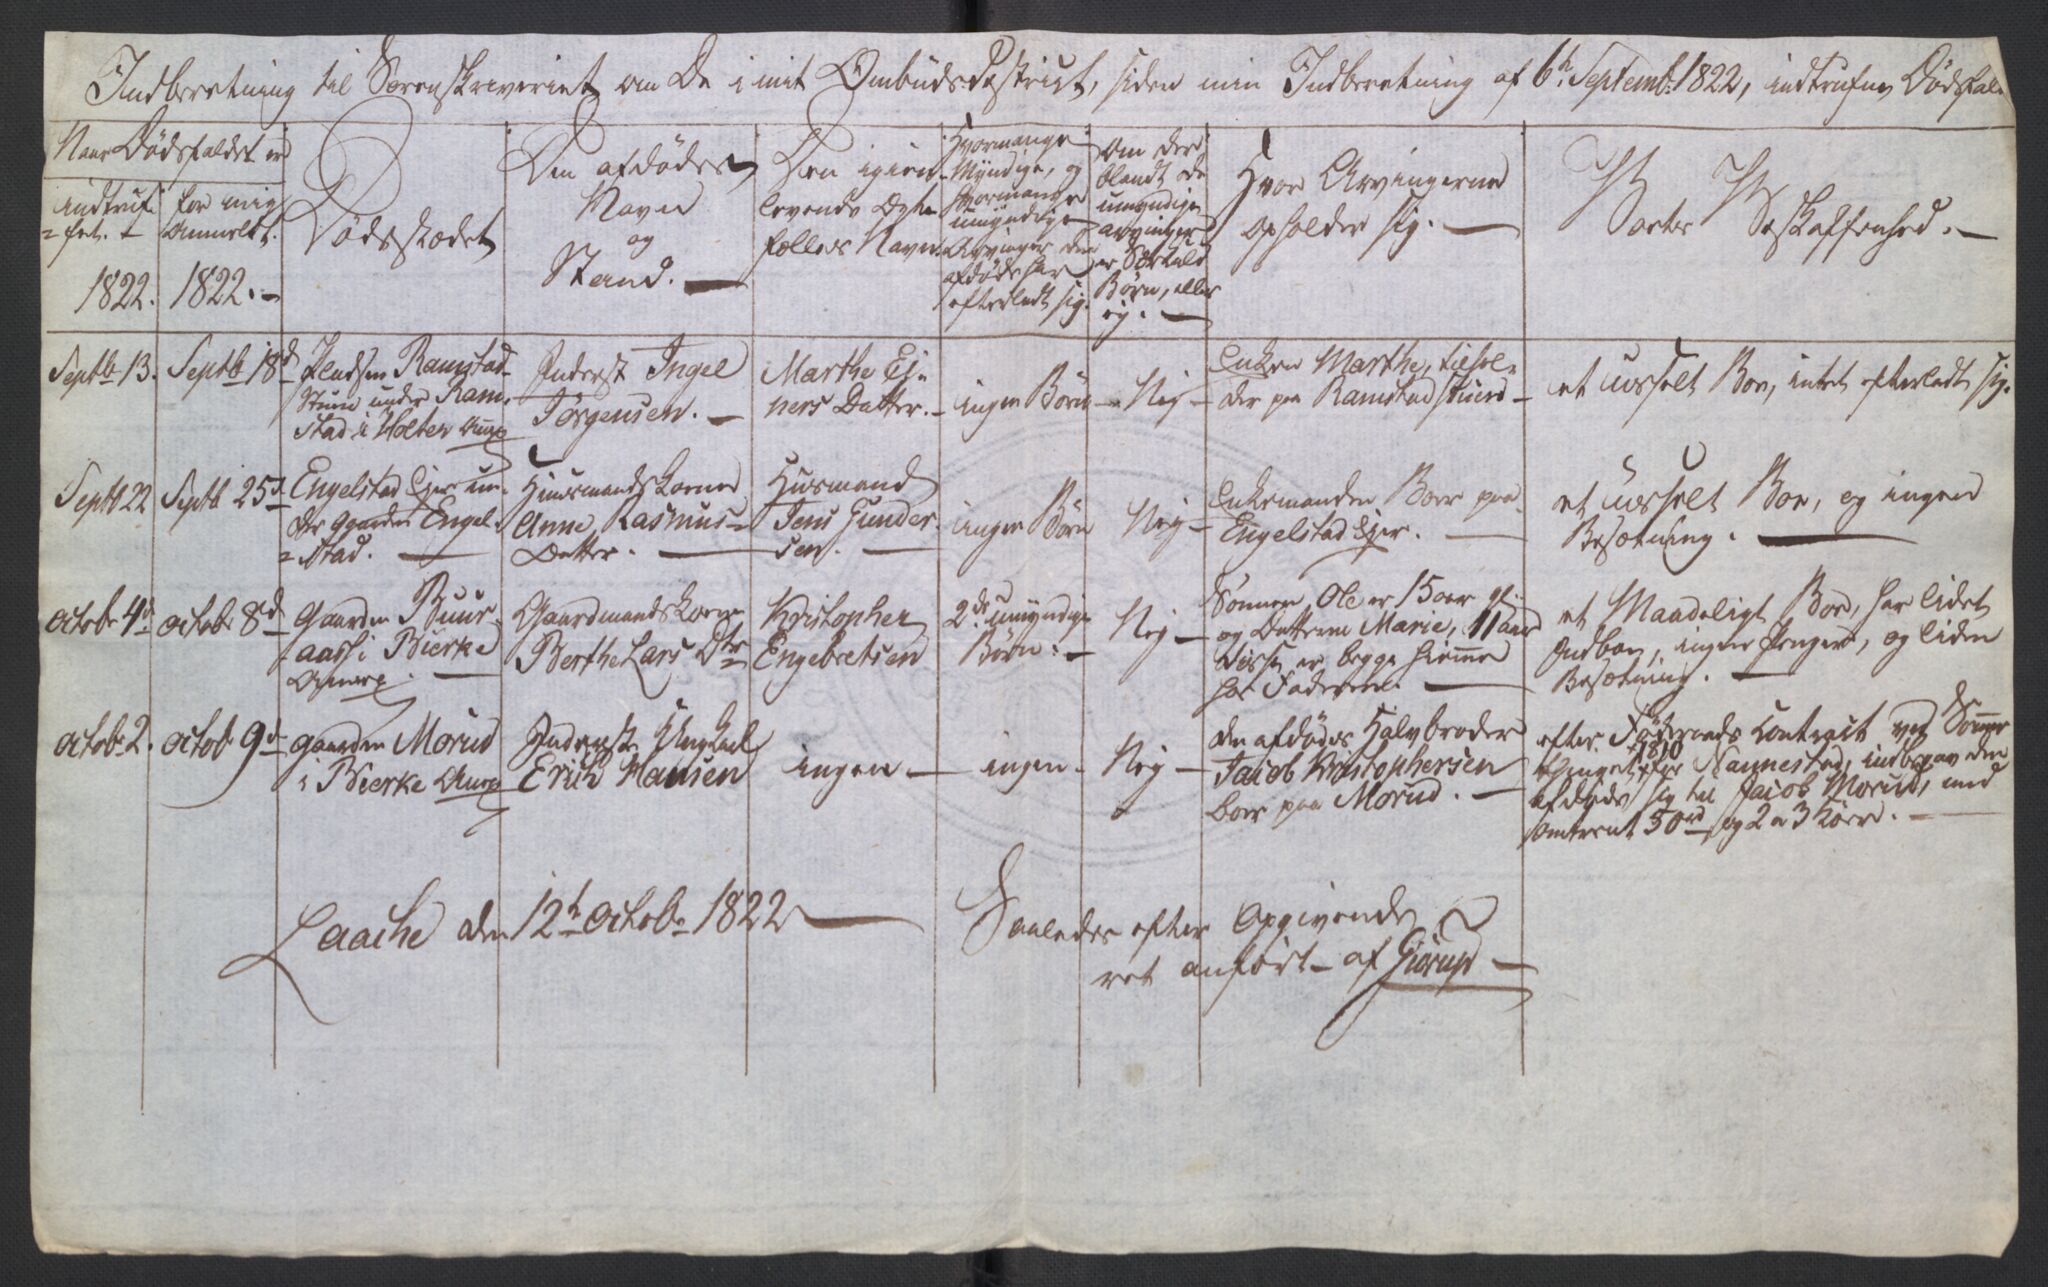 Indberetning til Sorenskriveriet om De i mit Ombudsdistrict, siden min Indberetning af 6te Septembr 1822, indtrufne Dødsfald
Naar Dødsfaldet er
indtruf-
=fet.
1822.
for mig
anmeldt.
1822.
Dødsstædet
Den afdødes
Navn
og
Stand.
Den igien-
levende Ægte-
fælles Navn
Hvormange
Myndige, og
hvormange
umyndige
Arvinger den
afdøde har
efterladt sig.
Om der
blandt de
umyndige
arvinger
er Særkuld
Børn, eller
ej.
Hvor Arvingerne
opholder sig.
Boets Beskaffenhed.
Septb 13.
Septb 18d
Pladsen Ramstad
Stuen under Ram-
stad i Holter Annex
Inderst Ingel
Jørgensen.
Marthe Ej-
ners Datter.
ingen Børn
Nej
Enken Marthe, tilhol-
der paa Ramstad stuen
et usselt Boe, intet efterladt sig.
Septb 22
Septb 25d
Engelstad Ejer un-
der Gaarden Engel-
=stad.
Huusmands Konen
Anne Rasmus-
Datter.
Husmand
Jens Gunder-
sen.
ingen Børn
Nej
Enkemanden Boer paa
Engelstad Ejer.
et usselt Boe, og ingen
Besætning.
octob 4d
octob 8d
Gaarden Buur-
aas i Bierke
Annex.
Gaardmands Kone
Berthe Lars Dtr
Kristopher
Engebretsen
2de umyndige
Børn.
Nej
Sønnen Ole er 15 aar gl.
og Datteren Marie, 11 aar
disse er begge hiemme
hos Faderen.
et Maadeligt Boe, har lidet
Indboe, ingen Penger, og liden
Besætning.
octob 2.
octob 9d
gaarden Morud
i Bierke Annex
Inderst Ungkarl
Erich Hansen
ingen
ingen
Nej
den afdødes Halvbroder
Jacob Kristophersen
boer paa Morud.
efter Føderaads Contract ved Sommer
1810
Thinget for Nannestad, indbgav den
afdøde sig til Jacob Morud, med
omtrent 50rd, og 2 a 3 Kiøer.
Laache den 12te octobr 1822
Saaledes efter Opgivende
ret anført af Giørup